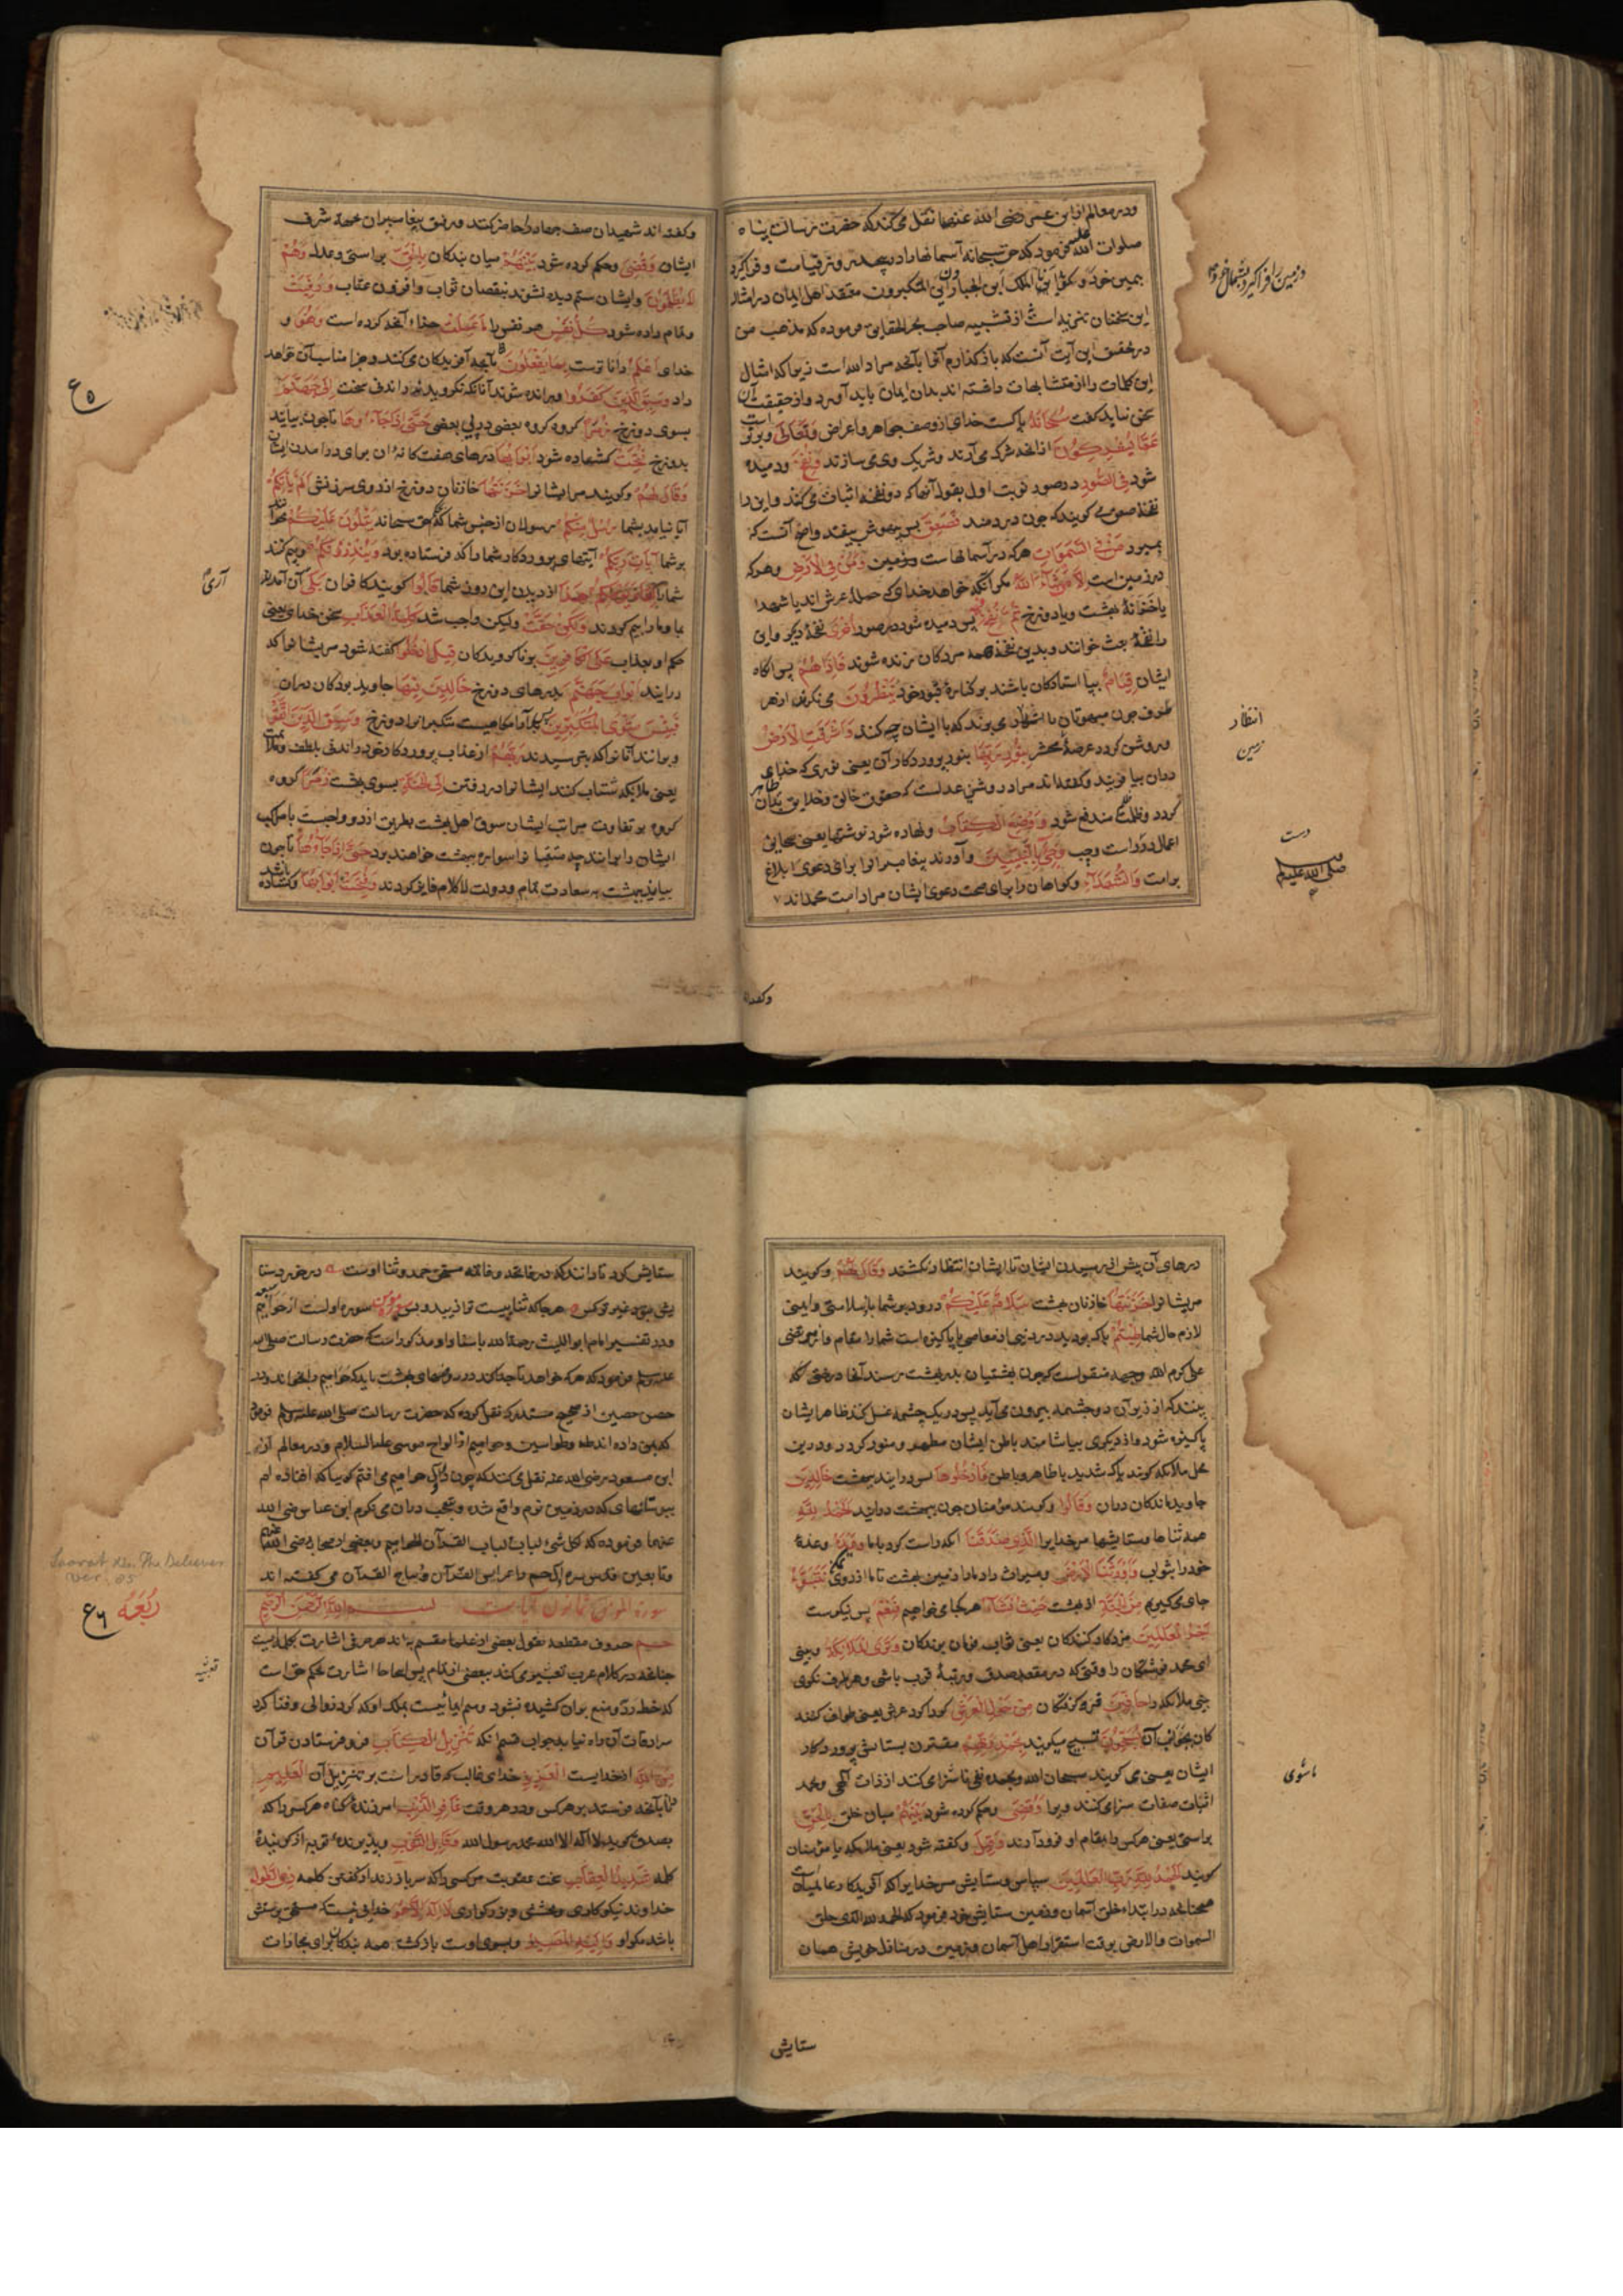 ودر معالم از ابن عمر رضی الله عنهما نقل می کند که حضرت رسالت پناه
صلوات الله علیه فرمود که حق سبحانه آسمانها را در پیچد روز قیامت و فرا گیرد
بیمین خود و گوید انا الملک این الجبارون این المتکبرون معتقد اهل ایمان در امثال
این سخنان تنزیه است از تشبیه صاحب بحر الحقایق فرموده که مذهب من
در تحقیق این آیت آنست که باز گذارم آنرا بآنچه مراد الله است زیرا که امثال
این کلمات را از متشابهات داشته اند بدان ایمان باید آورد و از حقیقت آن
سخن نباید گفت سُبحانَهُ پاکست خدای از وصف جواهر و اعراض وَتَعالی و برتر است
عَمّا یُشرِکُونَ از آنچه شرک می آرند و شریک وی می سازند وَنُفِخَ ودمیده
شود فِی الصُّورِ در صور نوبت اول بقول آنها که دو نفخه اثبات می کنند و این را
نفخه صعق می گویند که چون در دمند فَصَعِقَ پس بیهوش بیفتد واضح آنست که
بمیرد مَن فِی السَّمَواتِ هر که در آسمانهاست وَمَن فِی الاَرضِ وهر که
در زمین است اِلّا مَن شاءَ اللهُ مگر آنکه خواهد خدای که حمله عرش اند یا شهدا
یا خزنه بهشت و یا دوزخ ثُمَّ نُفِخَ فیهِ پس دمیده شود در صور اُخری نفخه دیگر و این
را نفخه بعث خوانند و بدین نفخه همه مردگان زنده شوند فَاِذا هُم پس آنگاه
ایشان قِیامٌ بپا استادگان باشند بر کناره قبور خود یَنظُرُونَ می نگرند از هر
طرف چون مبهوتان یا انتظار می برند که با ایشان چه کنند وَاَشرَقَتِ الاَرضُ
وروشن گردد عرصه محشر بِنُورِ رَبِّها بنور پروردگار آن یعنی نوری که خدای
دران بیافریند و گفته اند مراد روشنی عدلست که حقوق خالق و خلایق بدان ظاهر
گردد و ظلمت مندفع شود وَوُضِعَ الکِتابُ ونهاده شود نوشتها یعنی صحایف
اعمال در راست و چپ وَجِیءَ بِالنَّبِیّینَ و آورند پیغامبرانرا برای دعوی ابلاغ
بر امت وَالشُّهَداءِ و گواهان را برای صحت دعوی ایشان مراد امت محمد اند
و زمین را فراگیرد بشمال خود
انتظار
زمین
دست
صلی الله علیه وسلم
وگفته اند
وگفته اند شهیدان صف جهاد را حاضر کنند ورفیق پیغامبران بجهة شرف
ایشان وَقُضِیَ وحکم کرده شود بَینَهُم میان بندگان بِالحَقِّ براستی و عدل وَهُم
لا یُظلَمُونَ وایشان ستم دیده نشوند بنقصان ثواب و افزون عقاب وَوُفِّیَت
وتمام داده شود کُلُّ نَفسٍ هر نفس را ما عَمِلَت جزاء آنچه کرده است وَهُوَ و
خدای اَعلَمُ دانا ترست بِما یَفعَلُونَ بآنچه آفریدگان می کنند و جزا مناسب آن خواهد
داد وَسِیقَ الَّذِینَ کَفَرُوا ورانده شوند آنانکه نگرویدند راندنی سخت اِلی جَهَنَّمَ
بسوی دوزخ زُمَرًا گروه گروه بعضی در پی بعضی حَتّی اِذا جاءُوها تا چون بیایند
بدوزخ فُتِحَت کشاده شود اَبوابُها درهای هفت گانه آن برای در آمدن ایشان
وَقالَ لَهُم وگویند مر ایشانرا خَزَنَتُها خازنان دوزخ از روی سرزنش اَلَم یَأتِکُم
آیا نیامد بشما رُسُلٌ مِنکُم رسولان از جنس شما یَتلُونَ عَلَیکُم
بر شما آیاتِ رَبِّکُم آیتهای پروردگار شما را که فرستاده بود وَیُنذِرُونَکُم وبیم کنند
شما را لِقاءَ یَومِکُم هذا از دیدن این روز شما قالُوا گویند کافران بَلی آن آمدند
با وما را بیم کردند وَلکِن حَقَّت ولیکن واجب شد کَلِمَةُ العَذابِ سخن خدای یعنی
حکم او بعذاب عَلَی الکافِرِینَ بر ناگرویدگان قِیلَ ادخُلُوا گفته شود مر ایشانرا که
در آیند اَبوابَ جَهَنَّمَ بدرهای دوزخ خالِدِینَ فِیها جاوید بودگان دران
فَبِئسَ مَثوَی المُتَکَبِّرِینَ پس بد آرامگاهیست متکبرانرا دوزخ وَسِیقَ الَّذِینَ اتَّقَوا
وبرانند آنانرا که بترسیدند رَبَّهُم از عذاب پروردگار خود راندنی بلطف
یعنی ملایکه شتاب کنند ایشانرا در رفتن اِلَی الجَنَّةِ بسوی بهشت زُمَرًا گروه
گروه بر تفاوت مراتب ایشان
ایشان را برانند چه متقیان سواره ببهشت خواهند بود حَتّی اِذا جاءُوها تا چون
بیایند ببهشت وَفُتِحَت اَبوابُها وکشاده باشد
ع ۵
آری
درهای آن پیش از رسیدن ایشان تا ایشان انتظار نکشند وَقالَ لَهُم وگویند
مر ایشانرا خَزَنَتُها خازنان بهشت سَلامٌ عَلَیکُم درود بر شما یا سلامتی و ایمنی
لازم حال شما طِبتُم پاک بودید در دنیا از معاصی یا پاکیزه است شما را مقام و از مرتضی
علی کرم الله وجهه منقولست که چون بهشتیان بدر بهشت رسند آنجا درختی که
بینند که از زیر آن دو چشمه بیرون می آید پس در یک چشمه غسل کنند ظاهر ایشان
پاکیزه شود و از دیگری بیاشامند باطن ایشان مطهر و منور گردد ودرین
محل ملائکه گویند پاک شدید بظاهر و باطن فَادخُلُوها پس در آیند ببهشت خالِدِینَ
جاوید ماندگان دران وَقالُوا وگویند مؤمنان چون ببهشت در آیند اَلحَمدُ لِلّهِ
همه ثناها وستایشها مر خدایرا الَّذِی صَدَقَنا آنکه راست کرد با ما وَعدَهُ وعدهٔ
خود را بثواب وَاَورَثَنَا الاَرضَ ومیراث داد ما را زمین بهشت تا ما از روی نَتَبَوَّءُ
جای می گیریم مِنَ الجَنَّةِ از بهشت حَیثُ نَشاءُ هر کجا می خواهیم فَنِعمَ پس نیکوست
اَجرُ العامِلِینَ مزد کار کنندگان یعنی ثواب فرمان برندگان وَتَرَی المَلائِکَةَ وبینی
ای محمد فرشتگان را وقتی که در مقعد صدق ومرتبهٔ قرب باشی وهر طرف نگری
بینی ملائکه را حافِّینَ فرو گرفتگان مِن حَولِ العَرشِ گرداگرد عرش یعنی طواف کنند
کان بجوانب آن یُسَبِّحُونَ تسبیح میگویند بِحَمدِ رَبِّهِم مقترن بستایش پروردگار
ایشان یعنی می گویند سبحان الله وبحمده نفی ناسزا می کنند از ذات الهی وبحمد
اثبات صفات سزا می کنند ویرا وَقُضِیَ وحکم کرده شود بَینَهُم میان خلق بِالحَقِّ
براستی یعنی هر کس را بمقام او فرود آرند وَقِیلَ وگفته شود یعنی ملائکه یا مؤمنان
گویند اَلحَمدُ لِلّهِ رَبِّ العالَمِینَ سپاس وستایش مر خدایرا که آفریدگار عالمیان است
همچنانچه در ابتداء خلق آسمان وزمین ستایش خود فرمود که الحمد لله الذی خلق
السموات والارض بوقت استقرار اهل آسمان وزمین در منازل خویش همان
ماسوی
ستایش
ستایش کرد تا دانند که در فاتحه وخاتمه مستحق حمد وثنا اوست
سوره اولست از حوامیم
ودر تفسیر امام ابو اللیث رحمة الله باسناد او مذکور است که حضرت رسالت صلی الله
علیه وسلم فرمود که هر که خواهد تا چرا کند در روضهای بهشت باید که حوامیم را بخواند ودر
حصن حصین از صحیح مستدرک نقل کرده که حضرت رسالت صلی الله علیه وسلم فرمود
که بمن داده اند طه وطواسین وحوامیم از الواح موسی علیه السلام ودر معالم از
ابن مسعود رضی الله عنه نقل می کند که چون در حوامیم می افتم گوییا که افتاده ام
ببوستانهای که در زمین نرم واقع شده وتعجب دران می نگرم ابن عباس رضی الله
عنهما فرموده که لکل شیء لباب ولباب القرآن الحوامیم وبعضی از صحابه رضی الله عنهم
وتابعین عرایس القرآن ودیباج القرآن می گفته اند
سورة المؤمن ثمانون آیات بسم الله الرحمن الرحیم
حم حروف مقطعه بقول بعضی از علما مقسم به اند هر حرفی اشارت بکلمه ایست
چنانچه در کلام عرب تعبیر می کنند بعضی از نام پس اینجا حا اشارت بحکم حق است
که خط رد ومنع بران کشیده نشود ومیم ایمائیست بملک او که گرد زوال وفنا گرد
سرادقات آن راه نیابد جواب قسم آنکه تَنزِیلُ الکِتابِ فرو فرستادن قرآن
مِنَ اللهِ از خدایست العَزِیزِ خدای غالب که قادر است بر تنزیل آن العَلِیمِ
دانا بآنچه فرستد بر هر کس ودر هر وقت غافِرِ الذَّنبِ آمرزندهٔ گناه هر کس را که
بصدق گوید لا اله الا الله محمد رسول الله وَقابِلِ التَّوبِ وپذیرندهٔ توبه از گویندهٔ
کلمه شَدِیدِ العِقابِ سخت عقوبت مر کسی را که سر باز زند از گفتن کلمه ذِی الطَّولِ
خداوند نیکوکاری وبخشش وبزرگواری لا اِلهَ اِلّا هُوَ خدایی نیست که مستحق پرستش
باشد مگر او اِلَیهِ المَصِیرُ وبسوی اوست بازگشت همه بندگان برای مجازات
Soorat The Believer
Ver. 85
ربعه
ع ۶
تعبیه